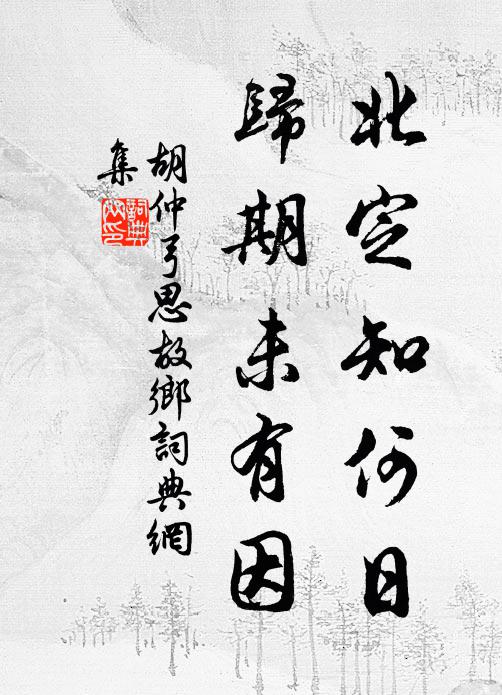 北定知何日
歸期未有因
胡仲弓思故鄉詞典網
集
詞典網印